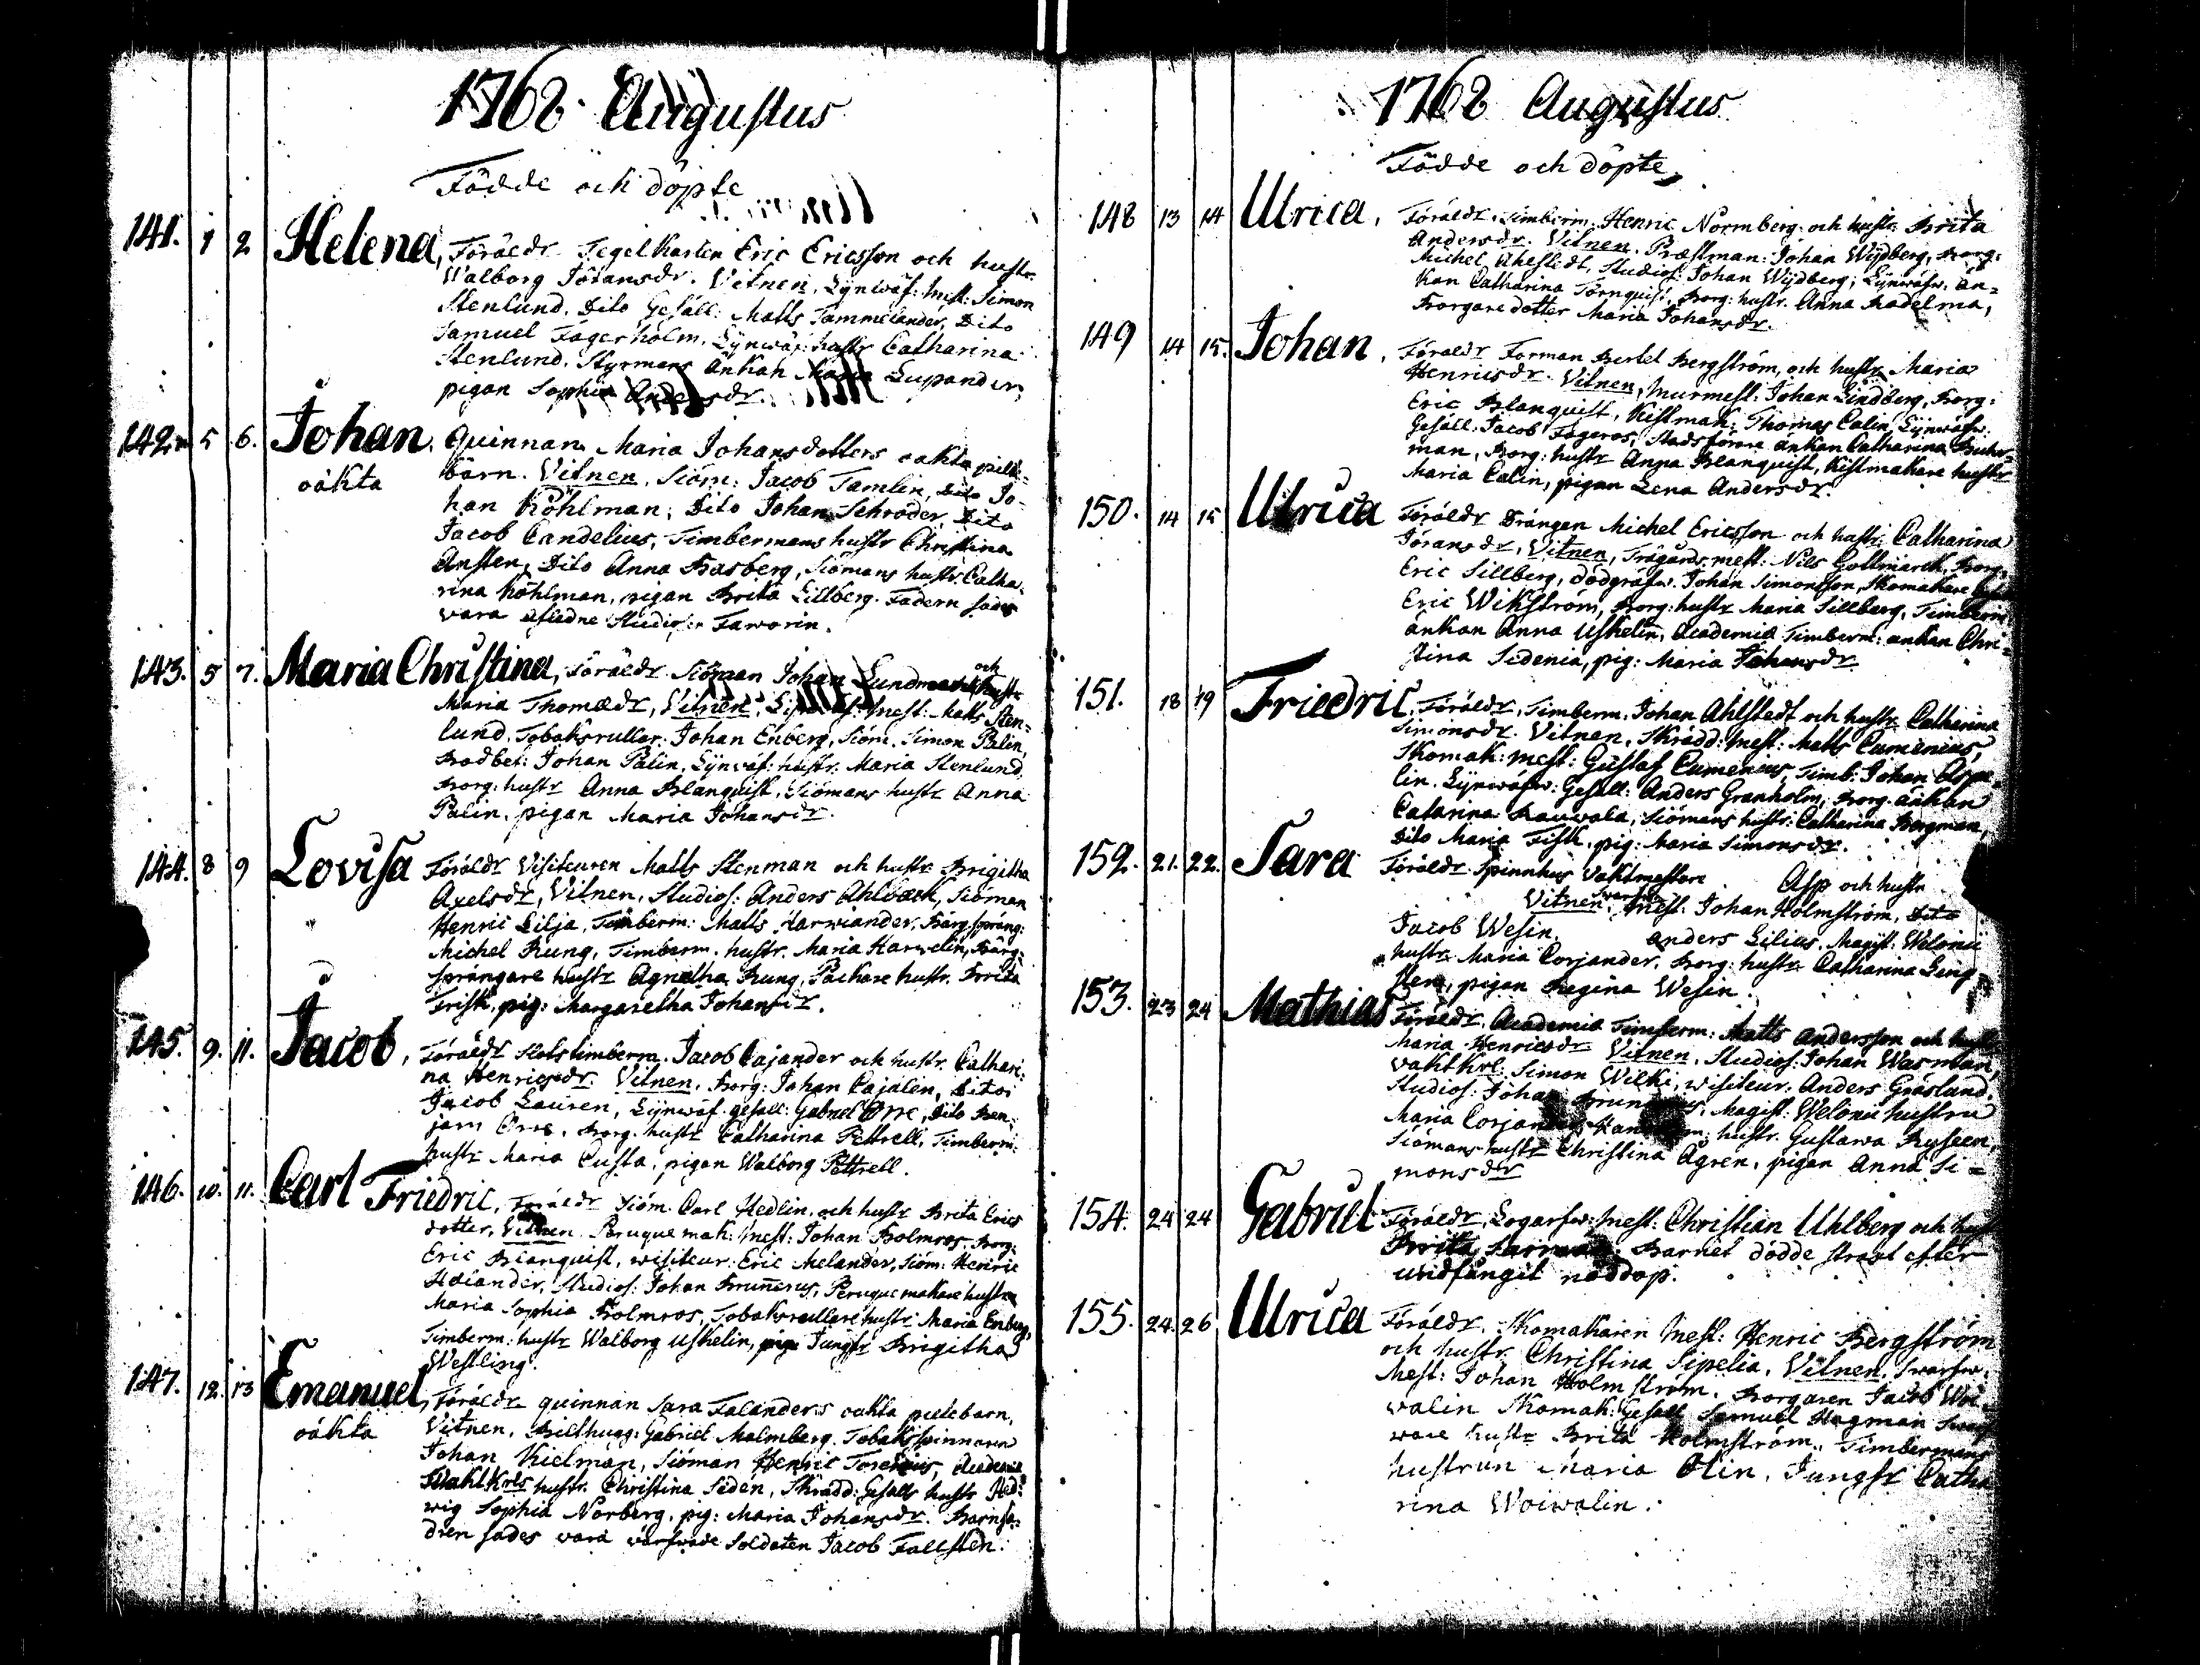 1768. Augustus
Födde och döpte
141. 1 2 Helena, Föräldr Tegelkarlen Eric Ericsson och hustr
Walborg Jöransdr. Vitnen, Lijnwäf: Mest: Simon
Stenlund. Dito Gesäll: Matts Tammelander, Dito
Samuel Fagerholm. Lijnwäf: hustr Catharina
Stenlund. Styrmans änkan Maria Lupander,
pigan Sophia Andersdr.
142. 5 6. Johan. Quinnan Maria Johansdotters oäkta pilte
oäkta
barn. Vitnen, Siöm: Jacob Tamlin, Dito Jo-
han Köhlman, Dito Johan Schröder, Dito
Jacob Candelius, Timbermans hustr Christina
Ansten, Dito Anna Hasberg, Siömans hustr. Catha-
rina Köhlman, pigan Brita Lillberg. Fadern sades
vara afledne Studios: Faworin.
143. 5 7. Maria Christina, Föräldr Siöman Johan Lundmark och hustr
Maria Thomædr, Vitnen, Mest: Matts Sten-
lund, Tobaksrullar. Johan Enberg, Siöm. Simon Palin,
Johan Palin, Lijnwäf: hustr. Maria Stenlund,
Borg: hustr Anna Blanquist, Siömans hustr Anna
Palin, pigan Maria Johansdr.
144. 8 9 Lovisa Föräldr Visiteuren Matts Stenman och hustr Brigitha
Axelsdr, Vitnen, Studios: Anders Ahlbæck, Siöman
Henric Lilja, Timberm: Matts Harwiander, Bärgspräng:
Michel Rung, Timberm. hustr. Maria Harwelin, Bärg-
sprängare hustr Agnetha Rung, Packare hustr. Brita
Frisk, pig: Margaretha Johansdr.
145. 9. 11. Jacob, Föräldr Slotstimberm. Jacob Cajander och hustr. Cathari-
na Henricsdr. Vitnen, Borg: Johan Cajalen, Dito
Jacob Lauren, Lijnwäf. gesäll: Gabriel Orre, Dito Ben-
jam Orre, Borg. hustr Catharina Pettrell, Timberm:
hustr Maria Custa, pigan Walborg Pettrell.
146. 10. 11. Carl Friedric, Föräldr Siöm. Carl Hedlin, och hustr Brita Erics
dotter, Vitnen Peruque mak: Mest: Johan Holmros, Borg:
Eric Blanquist, wisiteur: Eric Melander, Siöm: Henric
Studios: Johan Brunerus, Peruque makare hustru
Maria Sophia Holmros, Tobaksrullare hustr Maria Enberg,
Timberm: hustr Walborg Uskelin, Jungfr Brigitha
Westling.
147. 12. 13 Emanuel, Föräldr quinnan Sara Falanders oäkta piltebarn,
oäkta
Vitnen, Bilthugg: Gabriel Malmberg. Tobaksspinnaren
Johan Kielman, Siöman Henric Academie
Wahtkrls hustr. Christina Sedén, Skrädd: Gesälls hustr Hed-
wig Sophia Norberg, pig: Maria Johansdr. Barnfa-
dren sades vara värfwade Soldaten Jacob Fallsten.
1768 Augustus
Födde och döpte
148 13 14 Ulrica, Föräldr. Timberm: Henric Normberg och hustr. Brita
Andersdr. Vitnen, Præstman: Johan Wijdberg, Borg:
Michel Ahlstedt, Studios: Johan Wijdberg, Lijnwäfw. än-
kan Catharina Törnquist, Borg: hustr. Anna Radelma,
Borgaredotter Maria Johansdr.
149 14 15. Johan, Föräldr Forman Bertel Bergström, och hustr Maria
Henricsdr. Vitnen, Murmest: Johan Lindberg, Borg:
Eric Blanquist, Kistmak: Thomas Calin, Lijnwäfw.
Gesäll: Jacob Fageros, änkan Catharina
man, Borg: hustr Anna Blanquist, Kistmakare hustr
Maria Calin, pigan Lena Andersdr.
150. 14 15 Ulrica Föräldr Drängen Michel Ericsson och hustr. Catharina
Jöransdr, Vitnen, Trägårds mest: Nils Gottmarck, Borg.
Eric Sillberg, dödgräfw. Johan Simonsson, Skomakare
Eric Wikström, Borg: hustr Maria Sillberg, Timberm
änkan Anna Uskelin, Academiæ Timberm: änkan Chri-
stina Sidenia, pig: Maria Johansdr
151. 18 19 Friedric, Föräldr, Timberm. Johan Ahlstedt och hustr Catharina
Simonsdr. Vitnen, Skrädd: Mest: Matts Cumenius,
Skomak: Mest: Gustaf Cumenius, Timb: Johan Aspe-
lin. Lijnwäfw: Gesäll: Anders Granholm, Borg. änkan
Catarina Rauwola, Siömans hustr: Catharina Bergman,
Dito Maria Fisk, pig: Maria Simonsdr.
152. 21. 22. Sara Föräldr Spinnhus Vaktmestare Asp och hustr
Vitnen Mest: Johan Holmström, Dito
Jacob Wesin. Anders Lilius. Magist: Welonii
hustr Maria Corjander, Borg: hustr Catharina Leng-
sten, pigan Regina Wesin.
153. 23 24 Mathias Föräldr Academiæ Timberm: Matts Andersson och hustr
Maria Henricsdr Vitnen, Studios: Johan Wasman,
vaktkrl: Simon Wilki, wisiteur. Anders Gräslund,
Studios: Johan Magist: Welonii hustru
Maria Corjander, hustr. Gustawa Ryseen,
Siömans hustr Christina Ågren, pigan Anna Si-
monsdr
154. 24 24 Gabriel Föräldr, Logarfw: Mest: Christian Uhlberg och hustr
Brita Barnet dödde straxt efter
undfångit nöddop.
155. 24. 26 Ulrica Föräldr. Skomakaren Mest: Henric Bergström
och hustr. Christina Sipelia, Vitnen, Swarfw.
Mest: Johan Holmström, Borgaren Jacob Woi-
valin Skomak: Gesäll Samuel Hagman Swarf
ware hustr Brita Holmström, Timbermans
hustrun Maria Olin, Jungfr Catha
rina Woiwalin.